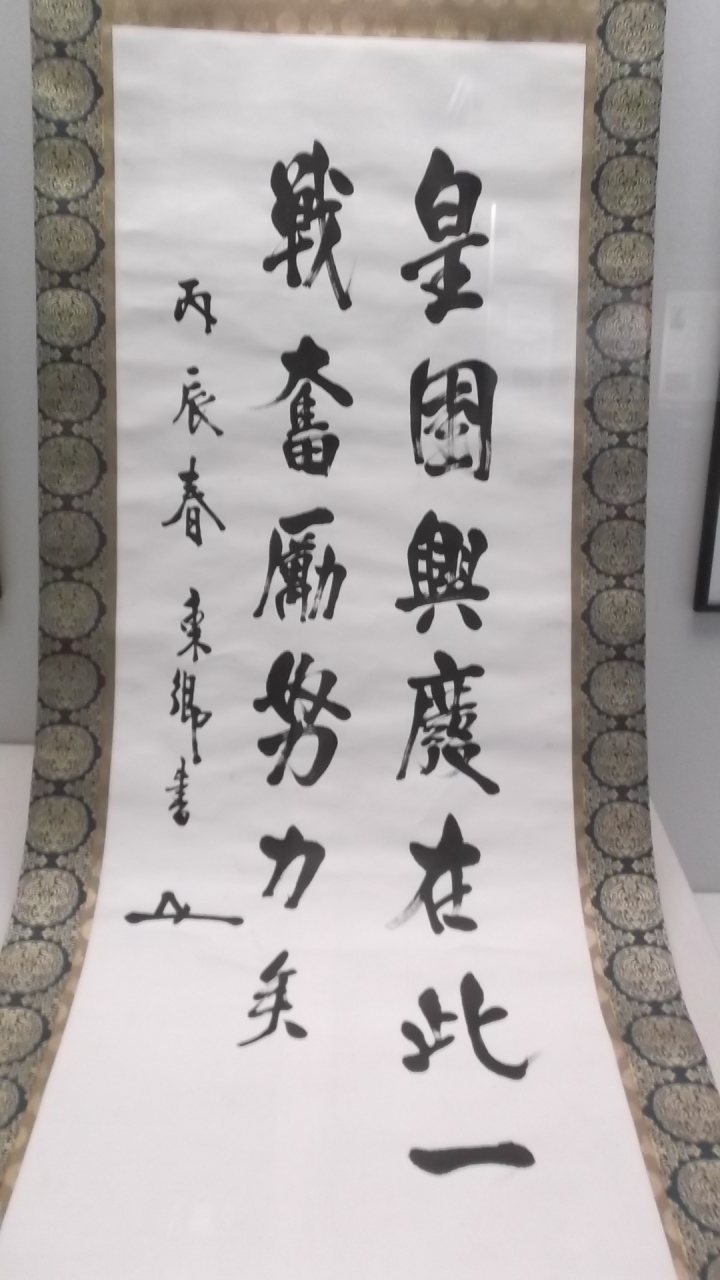 皇國興廢在此一
戰奮勵努力矣
丙辰春 東鄉書